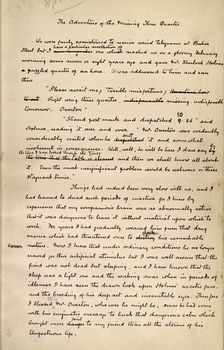 The Adventure of the Missing Three Quarter
We were fairly accustomed to receive weird telegrams at Baker
Street but I have a particular recollection of one which reached us on a gloomy February
morning some seven or eight years ago and gave Mr Sherlock Holmes
a puzzled quarter of an hour. It was addressed to him and ran
thus
"Please await me. Terrible misfortune,
Right wing three quarter missing indispensable
tomorrow. Overton"
"Strand post mark and dispatched 10
said
Holmes, reading it over and over. Mr Overton was evidently
considerably excited when he sent it and somewhat
incoherent in consequence. Well well, he will be here I dare say by
the time I have looked through the Times
the time that the table is cleared and then we shall know all about
it. Even the most insignificant problem would be welcome in these
stagnant times."
Things had indeed been very slow with us, and I
had learned to dread such periods of inaction for I knew by
experience that my companion's brain was so abnormally active
that it was dangerous to leave it without material upon which to
work. For years I had gradually weaned him from that drug
mania which had threatened once to his remarkable
career nature. Now I knew that under ordinary conditions he no longer
craved for this artificial stimulus but I was well aware that the
fiend was not dead but sleeping, and I have known that the
sleep was a light one and the waking near when in periods of
idleness I have seen the drawn look upon Holmes' ascetic face,
and the brooding of his deep set and inscrutable eyes. Therefore
I blessed Mr Overton, whoever he might be, since he had come
with his enigmatic message to break that dangerous calm which
brought more danger to my friend than all the storms of his
tempestuous life.